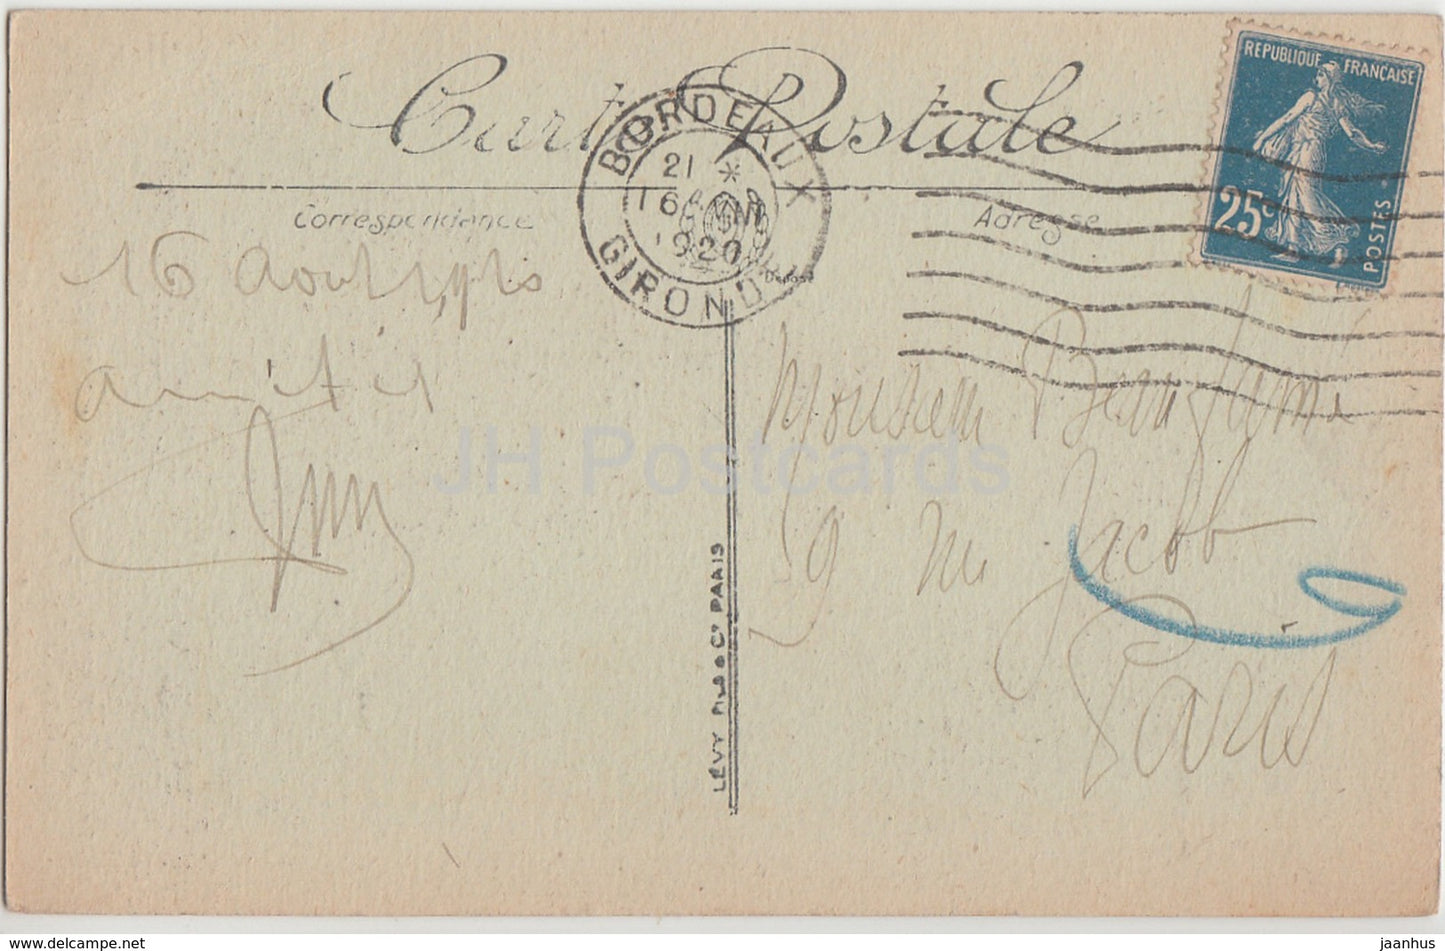 Carte Postale
Correspondance
Adresse
BORDEAUX
21 *
16 VIII
1920
GIRONDE
REPUBLIQUE FRANÇAISE
25c
POSTES
Déposé
16 Août 1920
amitiés
Monsieur
59 rue Jacob
Paris
LÉVY FILS & Cie PARIS
JH Postcards
www.delcampe.net
jaanhus